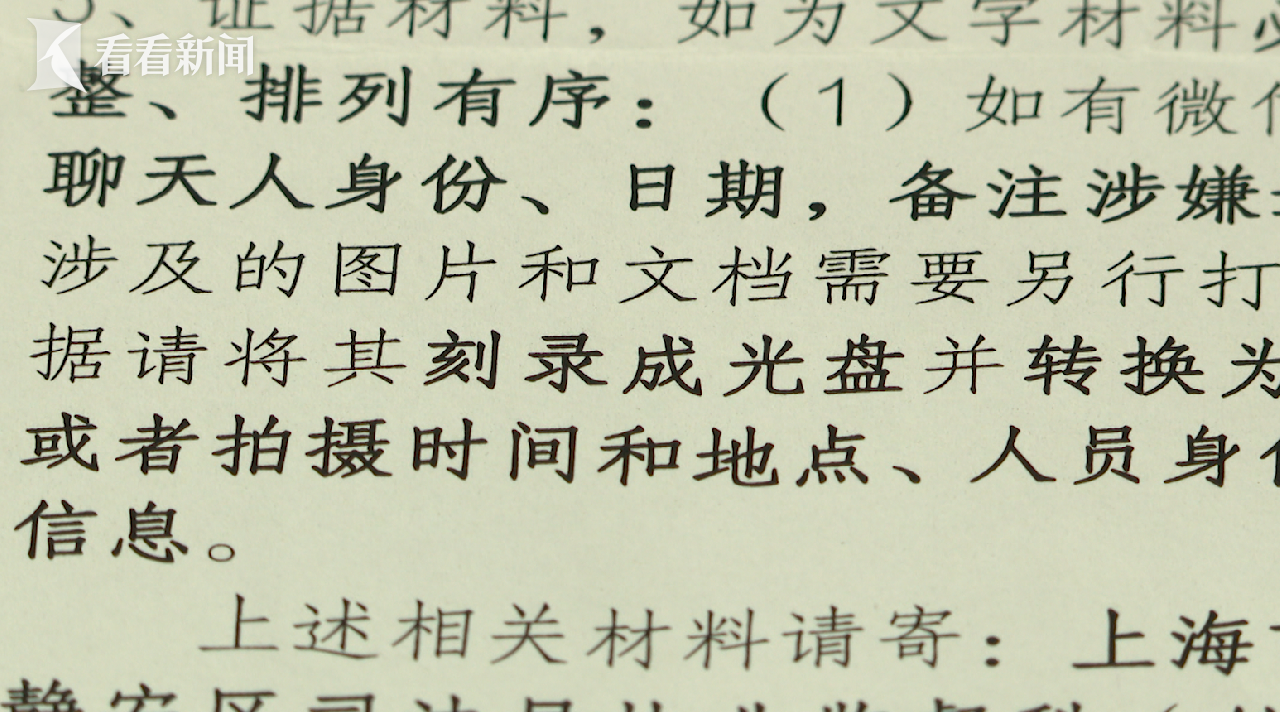 看看新闻
5、证据材料，如为文字材料必
整、排列有序：（1）如有微信
聊天人身份、日期，备注涉嫌
涉及的图片和文档需要另行打
据请将其刻录成光盘并转换为
或者拍摄时间和地点、人员身份
信息。
上述相关材料请寄：上海市
静安区司法局执业监督科（